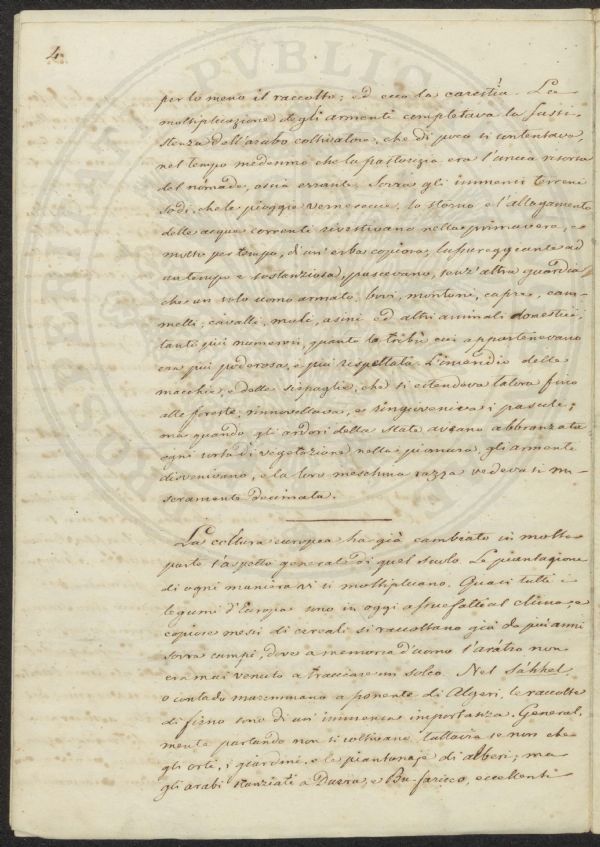 4.
per lo meno il raccolto; ed ecco la carestia. La
moltiplicazione degli armenti completava la sussi-
stenza dell'arabo coltivatore, che di poco si contentava,
nel tempo medesimo che la pastorizia era l'unica risorsa
del nomade, ossia errante. Sovra gli immensi terreni
sodi, che le pioggie vernerecce, lo storno e l'allagamento
delle acque correnti rivestivano nella primavera, e
molto per tempo, di un'erba copiosa, lussureggiante ad
un tempo e sostanziosa, pascevano, senz'altra guardia
che un solo uomo armato, bovi, montoni, capre, cam-
melli, cavalli, muli, asini ed altri animali domestici,
tanto più numerosi, quanto la tribù cui appartenevano
era più poderosa, e più rispettata. L'incendio delle
macchie, e delle siepaglie, che si estendeva talora fino
alle foreste, rinnovellava, e ringiovaniva i pascoli;
ma quando gli ardori della state aveano abbronzata
ogni sorta di vegetazione nella pianura, gli armenti
disvenivano, e la loro meschina razza vedevasi mi-
seramente decimata.
La coltura europea ha già cambiato in molta
parte l'aspetto generale di quel suolo. Le piantagione
di ogni maniera vi si moltiplicano. Quasi tutti i
legumi d'Europa sono in oggi assuefatti al clima, e
copiose messi di cereali si raccoltano già da più anni
sovra campi, dove a memoria d'uomo l'arátro non
era mai venuto a tracciare un solco. Nel Sáhhel
o contado maremmano a ponente di Algeri, le raccolte
di fieno sono di un'immensa importanza. General-
mente parlando non si coltivano tuttavia se non che
gli orti, i giardini, e le piantonaje di alberi; ma
gli arabi stanziati a Duera, e Bu-farico, eccellenti
PROSPERITATI PUBLICAE